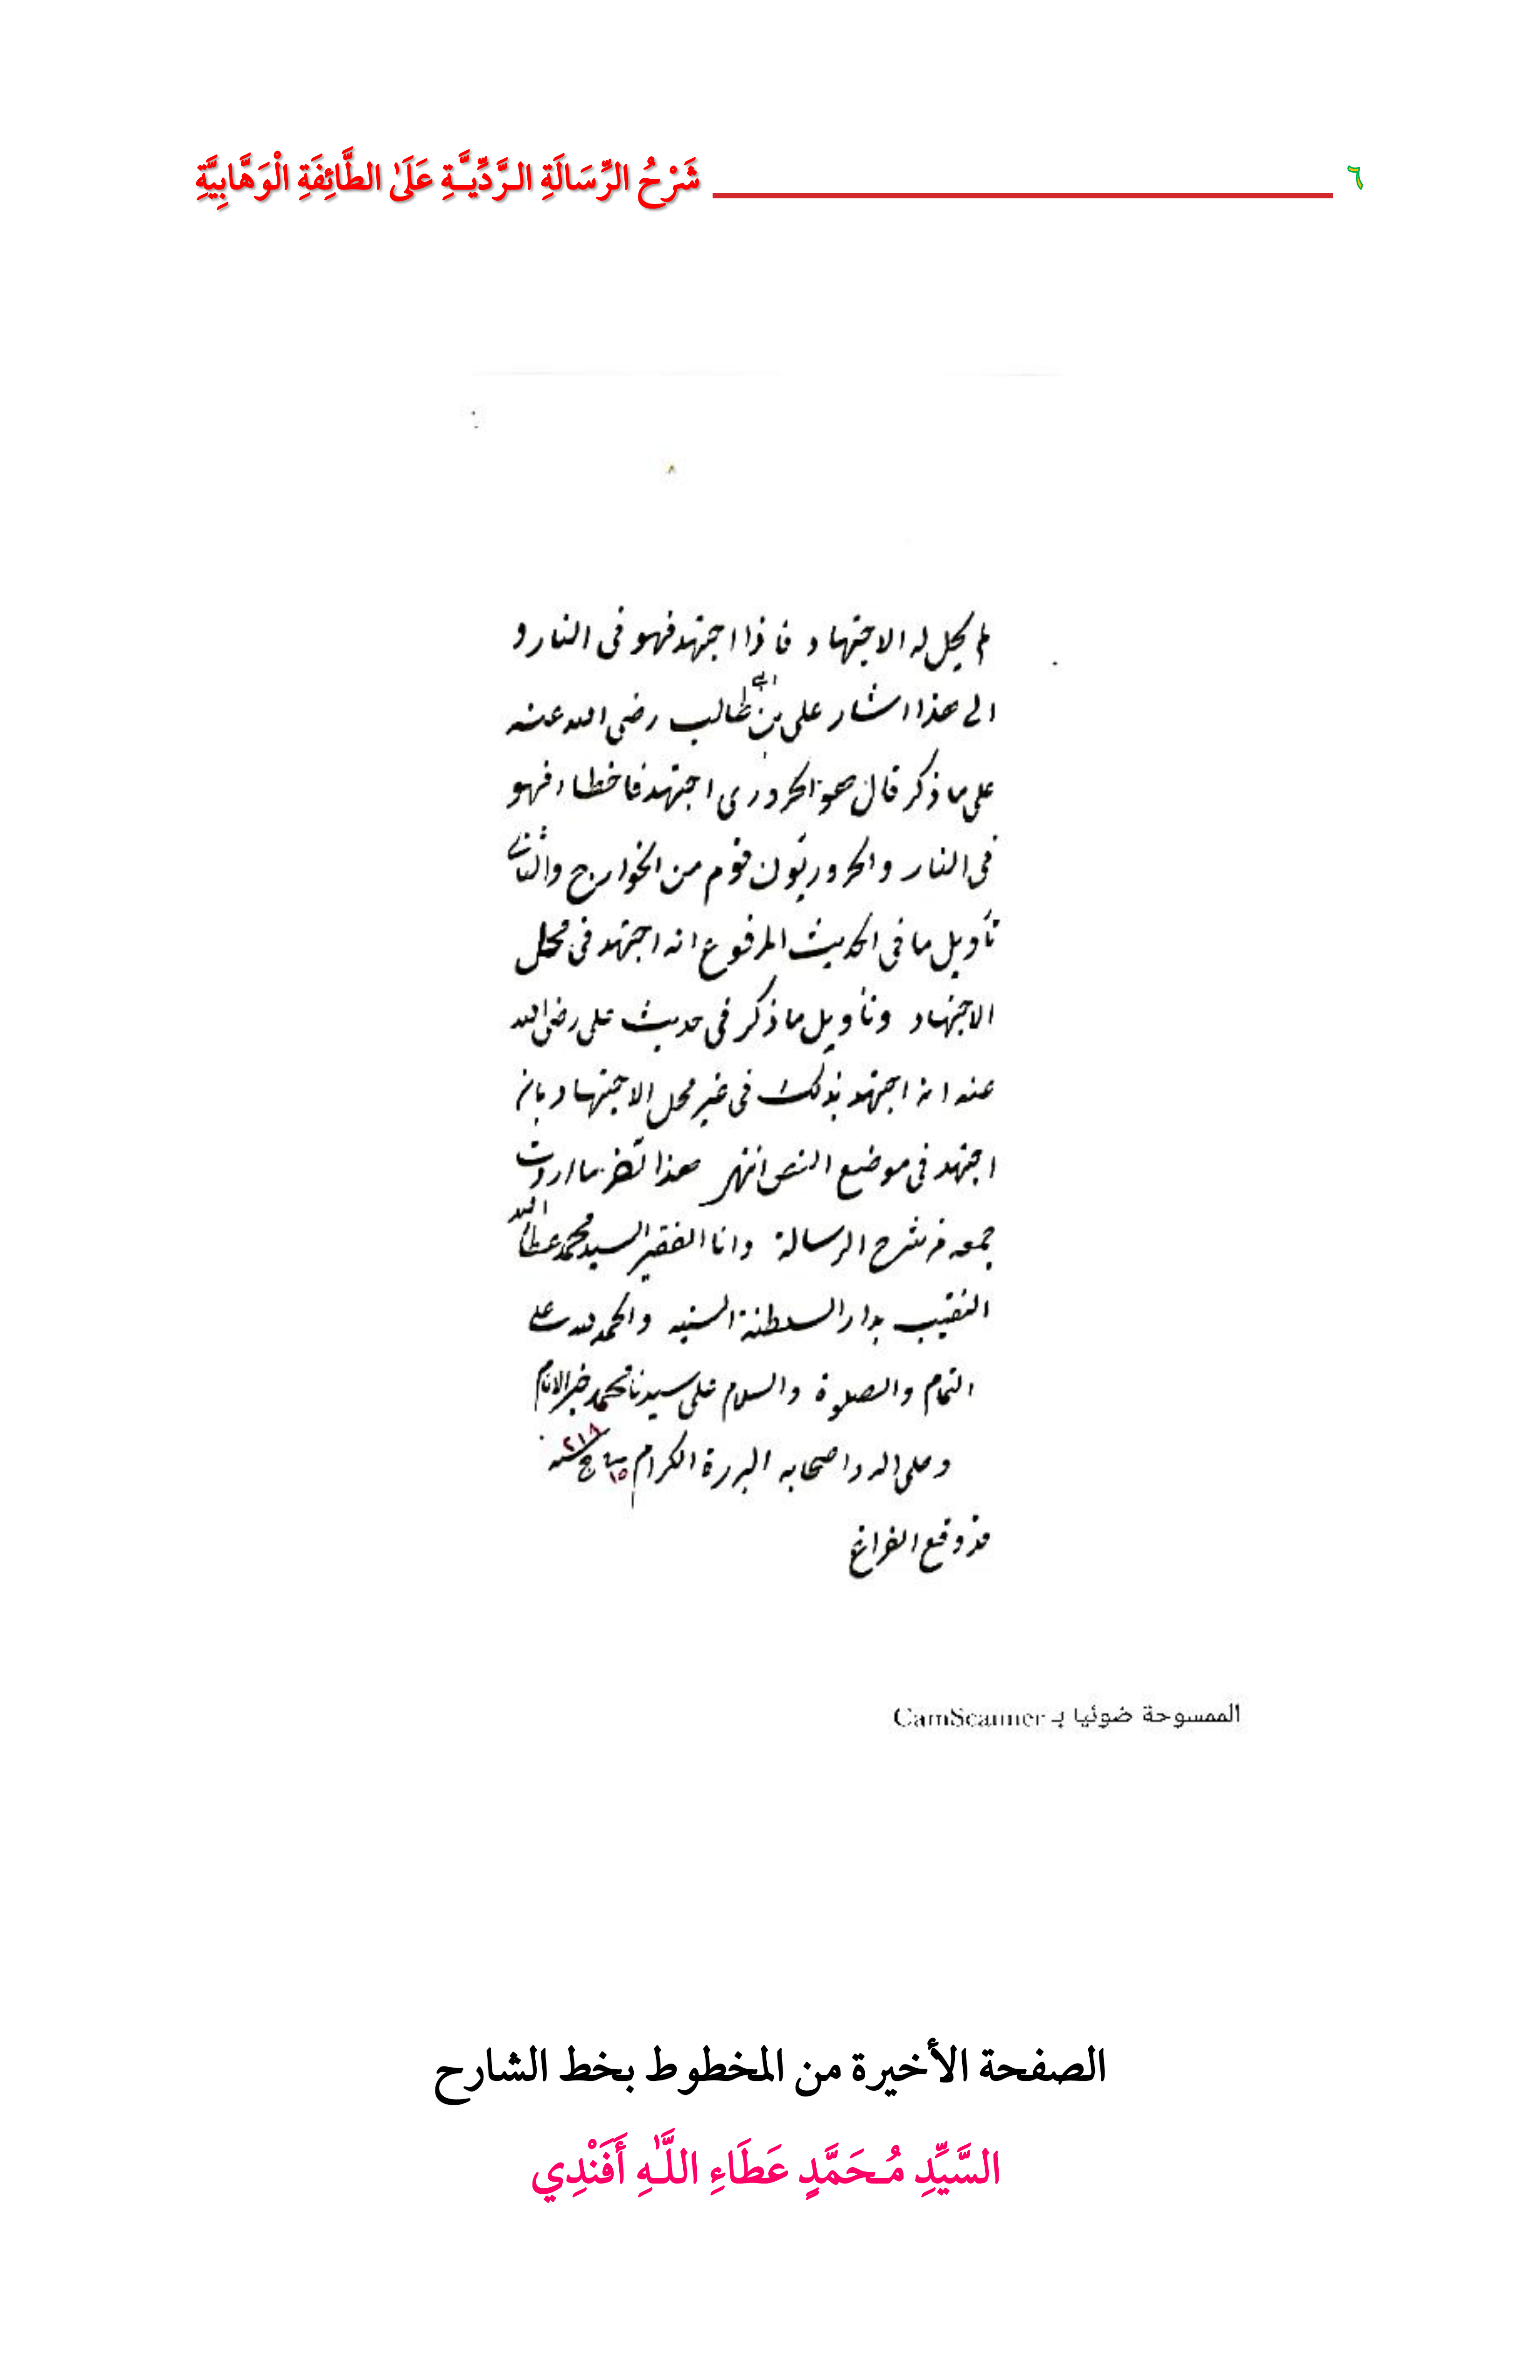 شَرْحُ الرِّسَالَةِ الرَّدِّيَّةِ عَلَىٰ الطَّائِفَةِ الْوَهَّابِيَّةِ ٦
٨
لم يحل له الاجتهاد فاذا اجتهد فهو فى النار و
الى هذا اشار على بن ابى طالب رضى الله عنه
على ما ذكر قال هو الحرورى اجتهد فاخطاء فهو
فى النار والحروريون قوم من الخوارج والثانى
تأويل ما فى الحديث المرفوع انه اجتهد فى محل
الاجتهاد وتأويل ما ذكر فى حديث على رضى الله
عنه انه اجتهد بذلك فى غير محل الاجتهاد بانه
اجتهد فى موضع النص انتهى هذا ما اردت
جمعه من شرح الرسالة وانا الفقير السيد محمد عطاء الله
النقيب بدار السلطنة السنيه والحمد لله على
التمام والصلوة والسلام على سيدنا محمد خير الانام
وعلى اله واصحابه البررة الكرام ١٥ ج سنه ٢١٨
وقع الفراغ
الممسوحة ضوئيا بـ CamScanner
الصفحة الأخيرة من المخطوط بخط الشارح
السَّيِّدِ مُحَمَّدٍ عَطَاءِ اللَّهِ أَفَنْدِي